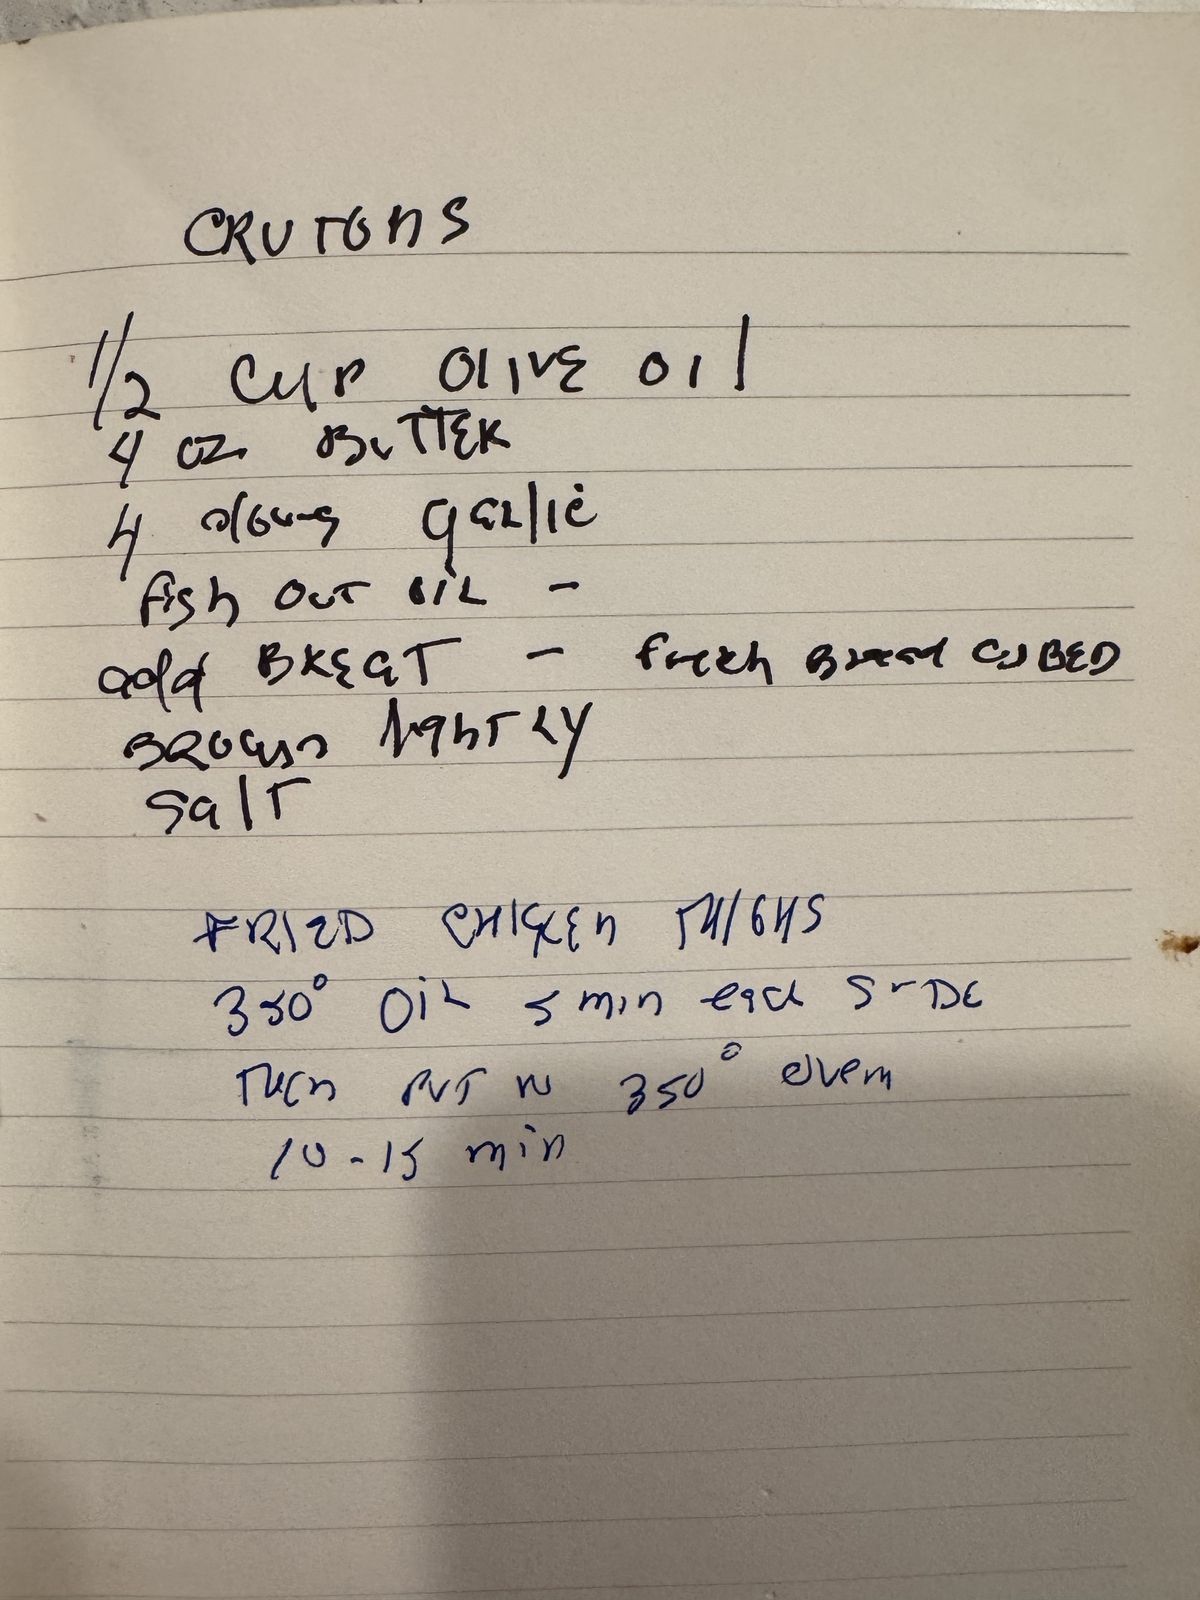 CRUTONS
1/2 CUP OLIVE OIL
4 OZ BUTTER
4 cloves garlic
fish OUT OIL -
add BREAT - fresh Bread CUBED
BROWN lightLY
SalT
FRIED CHICKEN THIGHS
350° OIL 5 min each SIDE
THEN PUT IN 350° Oven
10-15 min